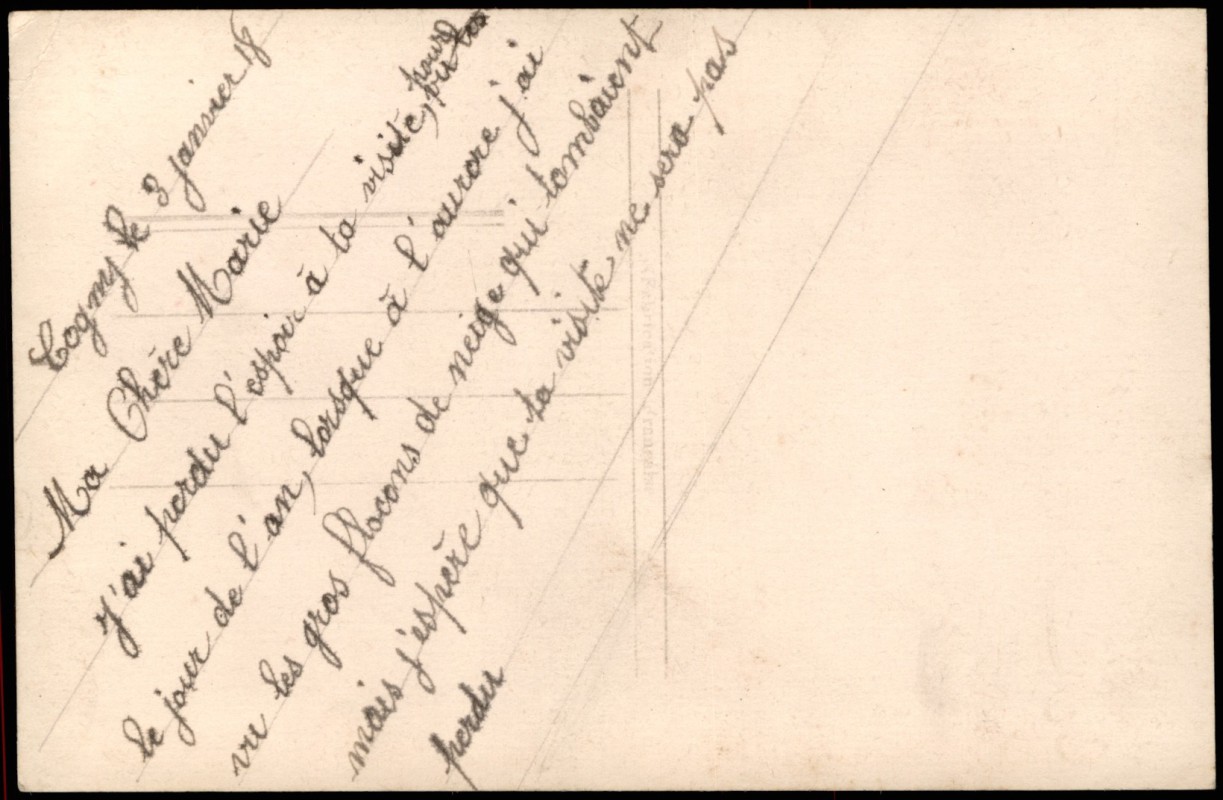 Cogny le 3 janvier 18
Ma Chère Marie
J'ai perdu l'espoir à ta visite, pour
le jour de l'an, lorsque à l'aurore j'ai
vu les gros flocons de neige qui tombaient
mais j'espère que ta visite ne sera pas
perdu